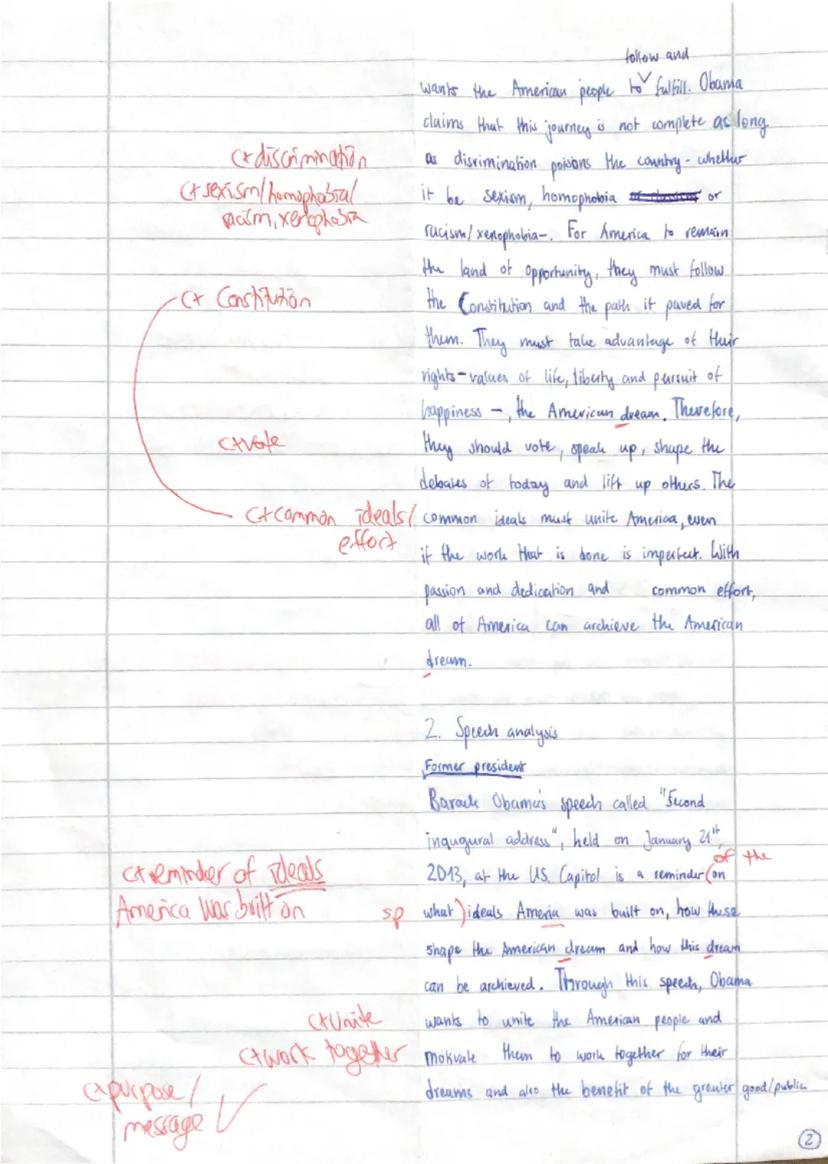 follow and
wants the American people to ✓ fulfill. Obama
claims that this journey is not complete as long
c+ discrimination
as disrimination poisons the country - whether
c+ sexism/homophobia/
it be sexism, homophobia or
racism, xenophobia
racism/xenophobia-. For America to remain
the land of opportunity, they must follow
c+ Constitution
the Constitution and the path it paved for
them. They must take advantage of their
rights-values of life, liberty and pursuit of
happiness -, the American dream. Therefore,
c+ vote
they should vote, speak up, shape the
debates of today and lift up others. The
c+ common ideals/
common ideals must unite America, even
effort
if the work that is done is imperfect. With
passion and dedication and common effort,
all of America can archieve the American
dream.
2. Speech analysis
Former president
Barack Obama's speech called "Second
inqugural address", held on January 21th,
of the
c+ reminder of ideals
2013, at the US. Capitol is a reminder (on
America was built on
sp
what) ideals Ameria was built on, how these
shape the American dream and how this dream
can be archieved. Through this speech, Obama
c+ unite
wants to unite the American people and
c+ work together
motivate them to work together for their
c+ purpose/
dreams and also the benefit of the greater good/public
message ✓
2